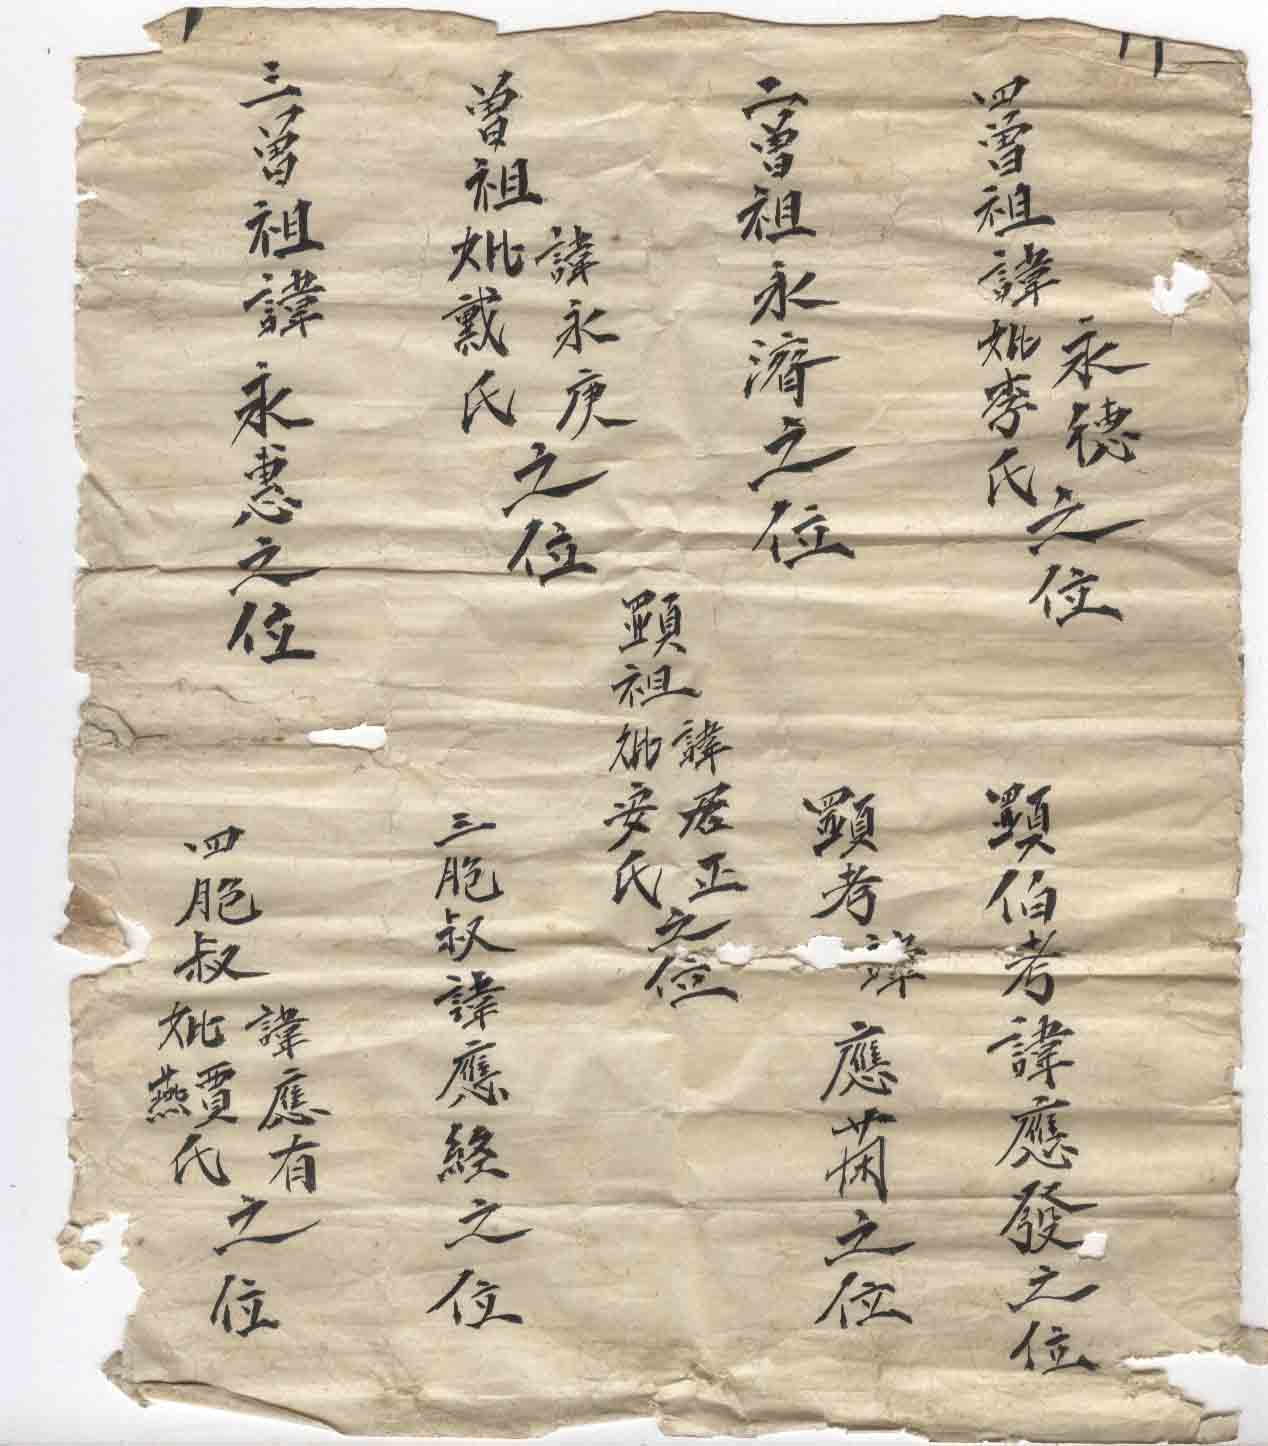 四曾祖諱永德妣李氏之位
二曾祖永濟之位
曾祖諱永庚妣戴氏之位
三曾祖諱永惠之位
顕伯考諱應發之位
顕考諱應蘭之位
顕祖諱居正妣安氏之位
三胞叔諱應終之位
四胞叔諱應有妣燕賈氏之位